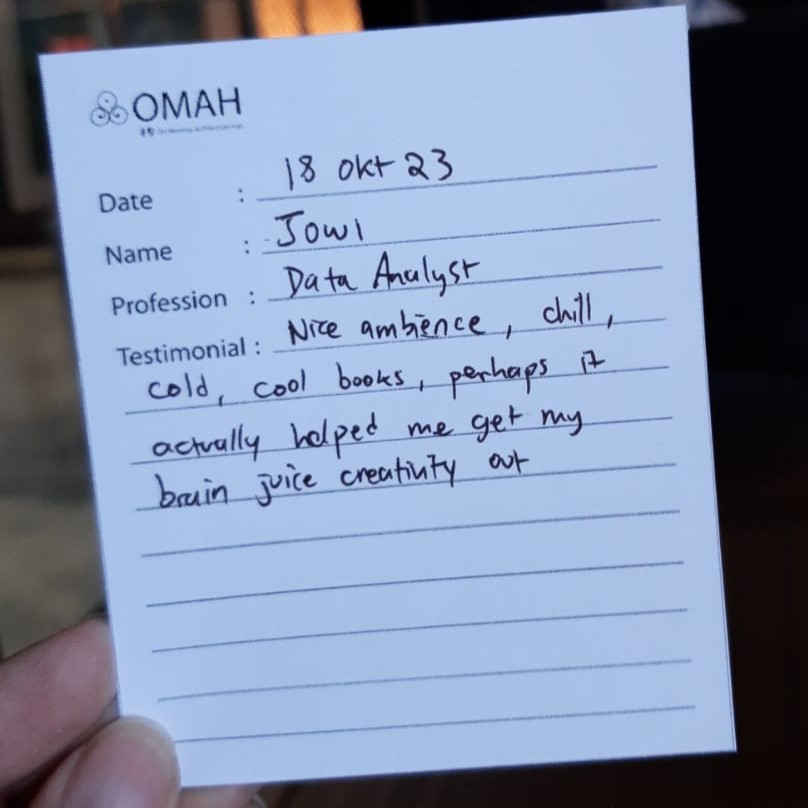 OMAH
Date : 18 Okt 23
Name : Jowi
Profession : Data Analyst
Testimonial : Nice ambience, chill,
cold, cool books, perhaps it
actually helped me get my
brain juice creativity out